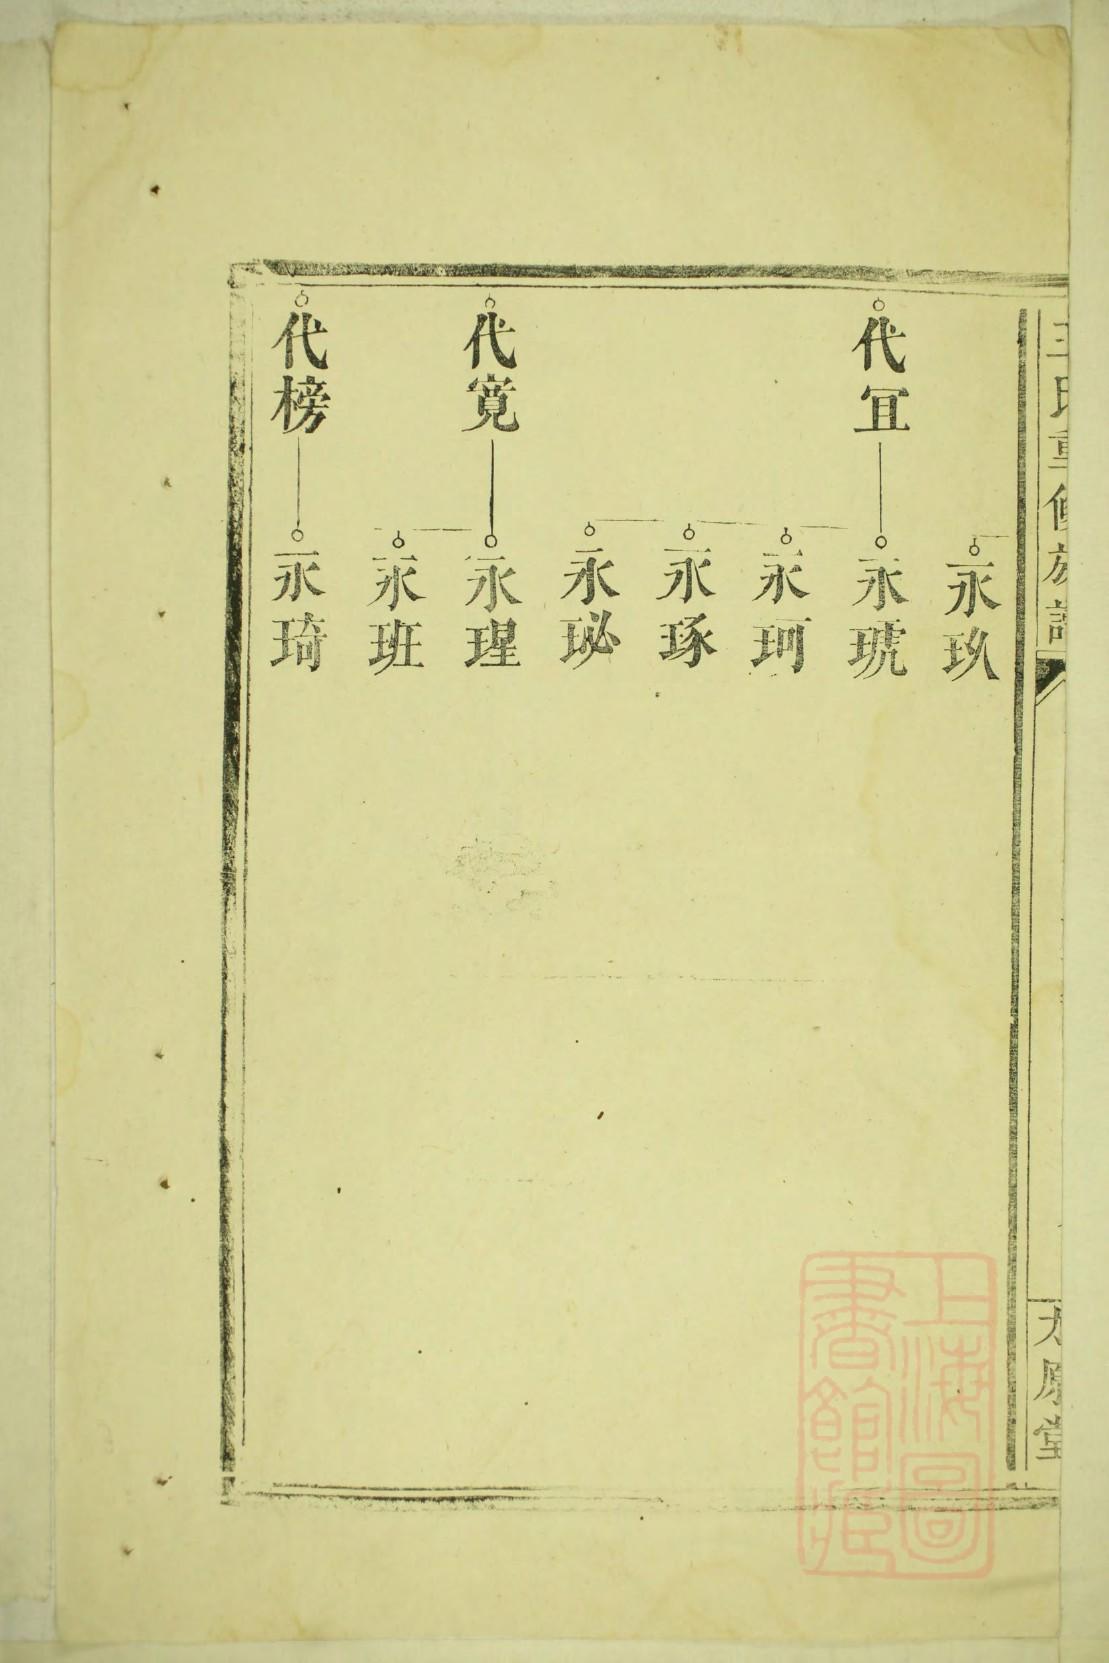 王氏重修族譜
太原堂
永玖
代宜
永琥
永珂
永琢
永珌
代寬
永瑆
永班
代榜
永琦
上海圖書館藏